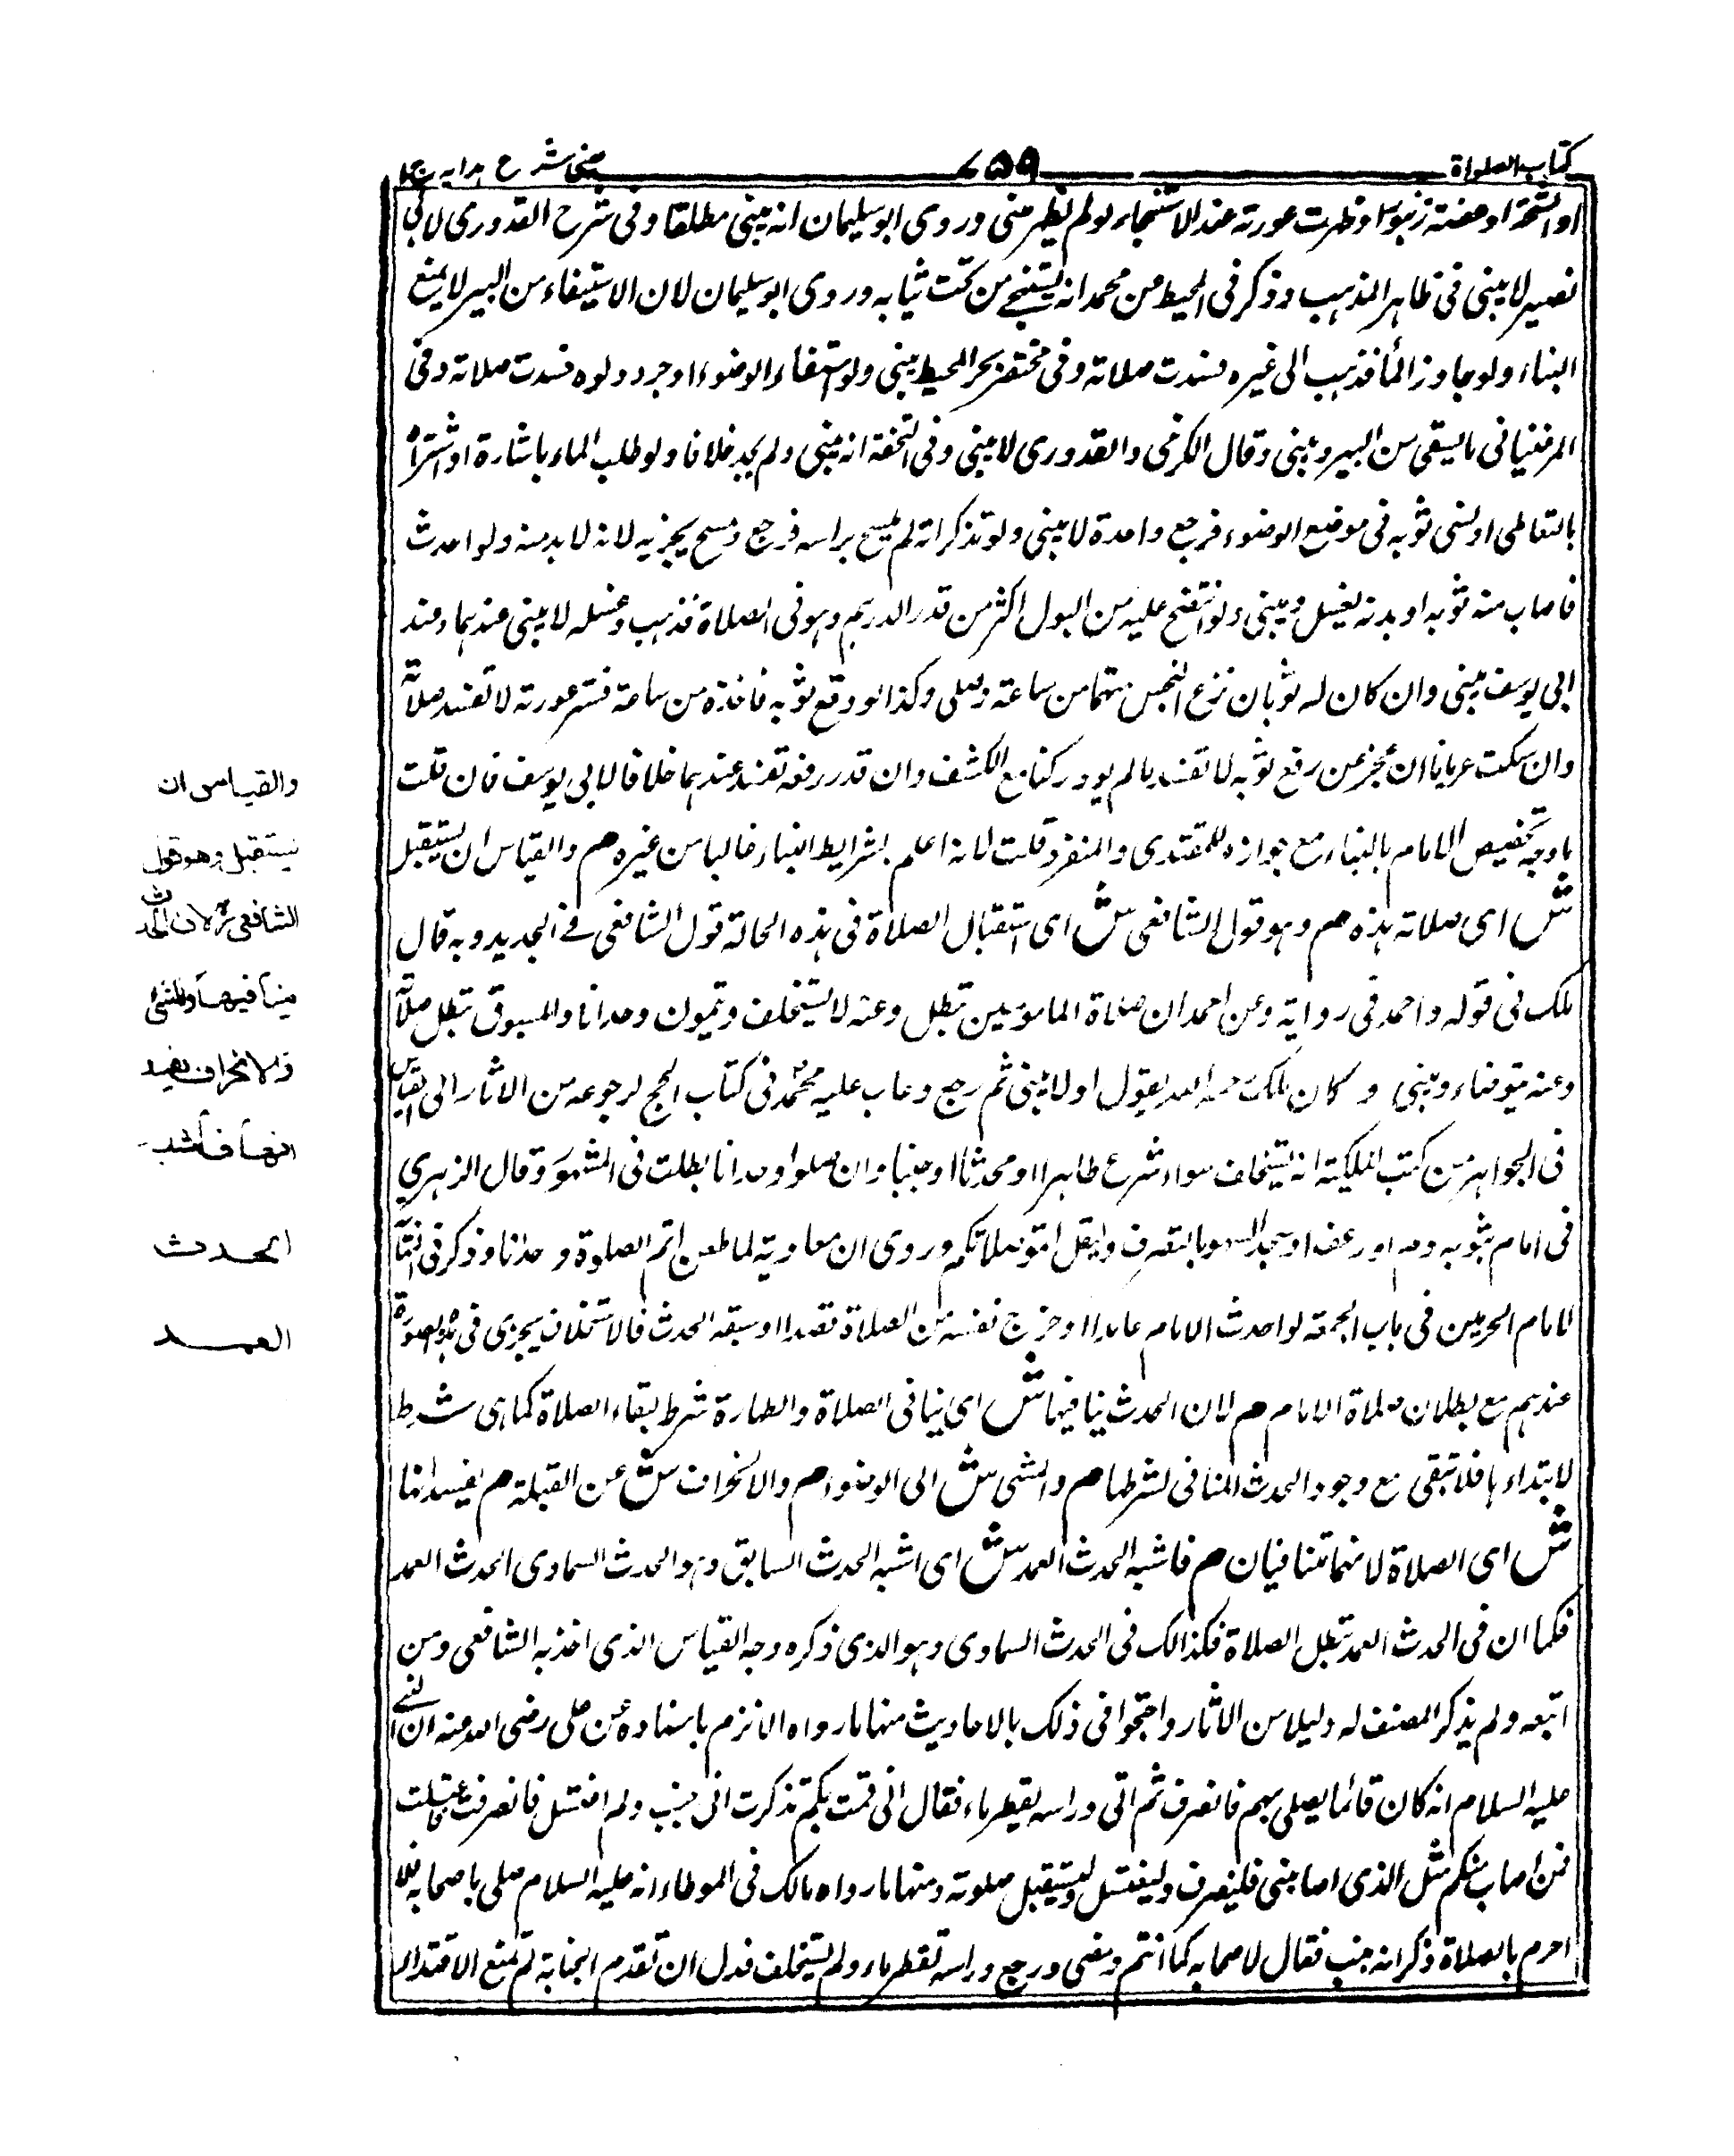 كتاب الصلواة
٧٥٩
عينى شرح هدايه ج١
او الشجة او عضه زنبور او ظهرت عورته عند الاستنجاء لو لم يظهر منى وروى ابو سليمان انه يبنى مطلقا وفى شرح القدورى لابى
نصير لا يبنى فى ظاهر المذهب وذكر فى المحيط من محمد انه يستنجى من تحت ثيابه وروى ابو سليمان لان الاستيفاء من البير لا يمنع
البناء ولو جاوز الماء فذهب الى غيره فسدت صلاته وفى مختصر بحر المحيط يبنى ولو الوضوء او جرد دلوه فسدت صلاته وفى
المرغنيانى ما يستقى من البير ويبنى وقال الكرخى والقدورى لا يبنى وفى التحفة انه يبنى ولم يجد خلافا ولو طلب الماء باشارة او اشتراه
بالتعاطى او نسى ثوبه فى موضع الوضوء فرجع واحدة لا يبنى ولو تذكر انه لم يمسح براسه فرجع ومسح يجزيه لانه لا بد منه ولو احدث
فاصاب منه ثوبه او بدنه يغسل ويبنى ولو انتضح عليه من البول اكثر من قدر الدرهم وهو فى الصلاة فذهب وغسله لا يبنى عندهما وعند
ابى يوسف يبنى وان كان له ثوبان نزع النجس منهما من ساعته وصلى وكذا لو وقع ثوبه فاخذه من ساعة فستر عورته لا تفسد صلاته
وان سكت عريانا ان عجز عن رفع ثوبه لا تفسد ما لم يود ركنا مع الكشف وان قدر رفعه تفسد عندهما خلافا لابى يوسف فان قلت
ما وجه تخصيص الامام بالبناء مع جوازه للمقتدى والمنفرد قلت لانه اعلم بشرايط البناء غالبا من غيره هم والقياس ان يستقبل
ش اى صلاته هذه هم وهو قول الشافعى ش اى استقبال الصلاة فى هذه الحالة قول الشافعى فى الجديد وبه قال
ملك فى قوله واحمد فى رواية وعن احمد ان صلاة المامومين تبطل وعنه لا يستخلف ويتمون وحدانا والمسبوق تبطل صلاته
وعنه يتوضاء ويبنى و كان ملك رحمه الله يقول اولا يبنى ثم رجع وعاب عليه محمد فى كتاب الحج لرجوعه من الاثار الى القياس
فى الجواهر من كتب المليكة انه يستخلف سواء شرع طاهرا او محدثا او جنبا وان صلوا وحدانا بطلت فى المشهور وقال الزهري
فى امام بثوبه دم او رعف او سجد السهو ينصرف وليقل اتموا صلاتكم وروى ان معاوية لما طعن اتم الصلوة وحدانا وذكر فى
لامام الحرمين فى باب الجمعة لو احدث الامام عامدا او خرج نفسه من الصلاة قصدا او سبقه الحدث فالاستخلاف يجزى فى هذه الصورة
عندهم مع بطلان صلاة الامام هم لان الحدث ينافيها ش اى ينافى الصلاة والطهارة شرط لبقاء الصلاة كما هى شرط
لابتداءها فلا تبقى مع وجود الحدث المنافى لشرطها هم والمشى ش الى الوضوء هم والانحراف ش عن القبلة هم يفسدانها
ش اى الصلاة لانهما تنافيان هم فاشبه الحدث العمد ش اى اشبه الحدث السابق وهو الحدث السماوى الحدث العمد
فكما ان فى الحدث العمد تبطل الصلاة فكذالك فى الحدث السماوى وهو الذى ذكره وجه القياس الذى اخذ به الشافعى ومن
اتبعه ولم يذكر المصنف له دليلا من الاثار واحتجوا فى ذلك بالاحاديث منها ما رواه الاثرم باسناده عن على رضى الله عنه ان النبى
عليه السلام انه كان قائما يصلى بهم فانصرف ثم اتى وراسه يقطر ماء فقال انى قمت بكم تذكرت انى جنب ولم اغتسل فانصرفت فاغتسلت
فمن اصاب منكم مثل الذى اصابنى فلينصرف وليغتسل وليستقبل صلوته ومنها ما رواه مالك فى الموطاء انه عليه السلام صلى باصحابه فلما
احرم بالصلاة ذكر انه جنب فقال لاصحابه كما انتم ومضى ورجع وراسه تقطر ماء ولم يستخلف فدل ان تقدم الجنابة لم يمنع الاقتداء
والقياس ان
يستقبل وهو قول
الشافعى لان الحدث
ينافيها والمشى
والانحراف يفسد
انها فاشبه
الحدث
العمد